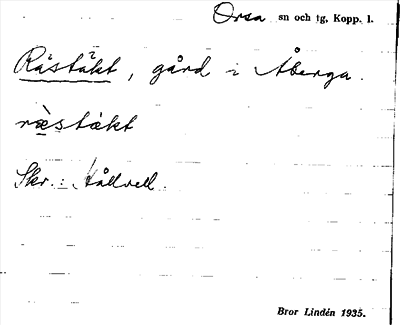 Orsa sn och tg, Kopp. l.
Råstäkt, gård i Åberga.
ræstäkt
Skr.: Hållvell.
Bror Lindén 1935.